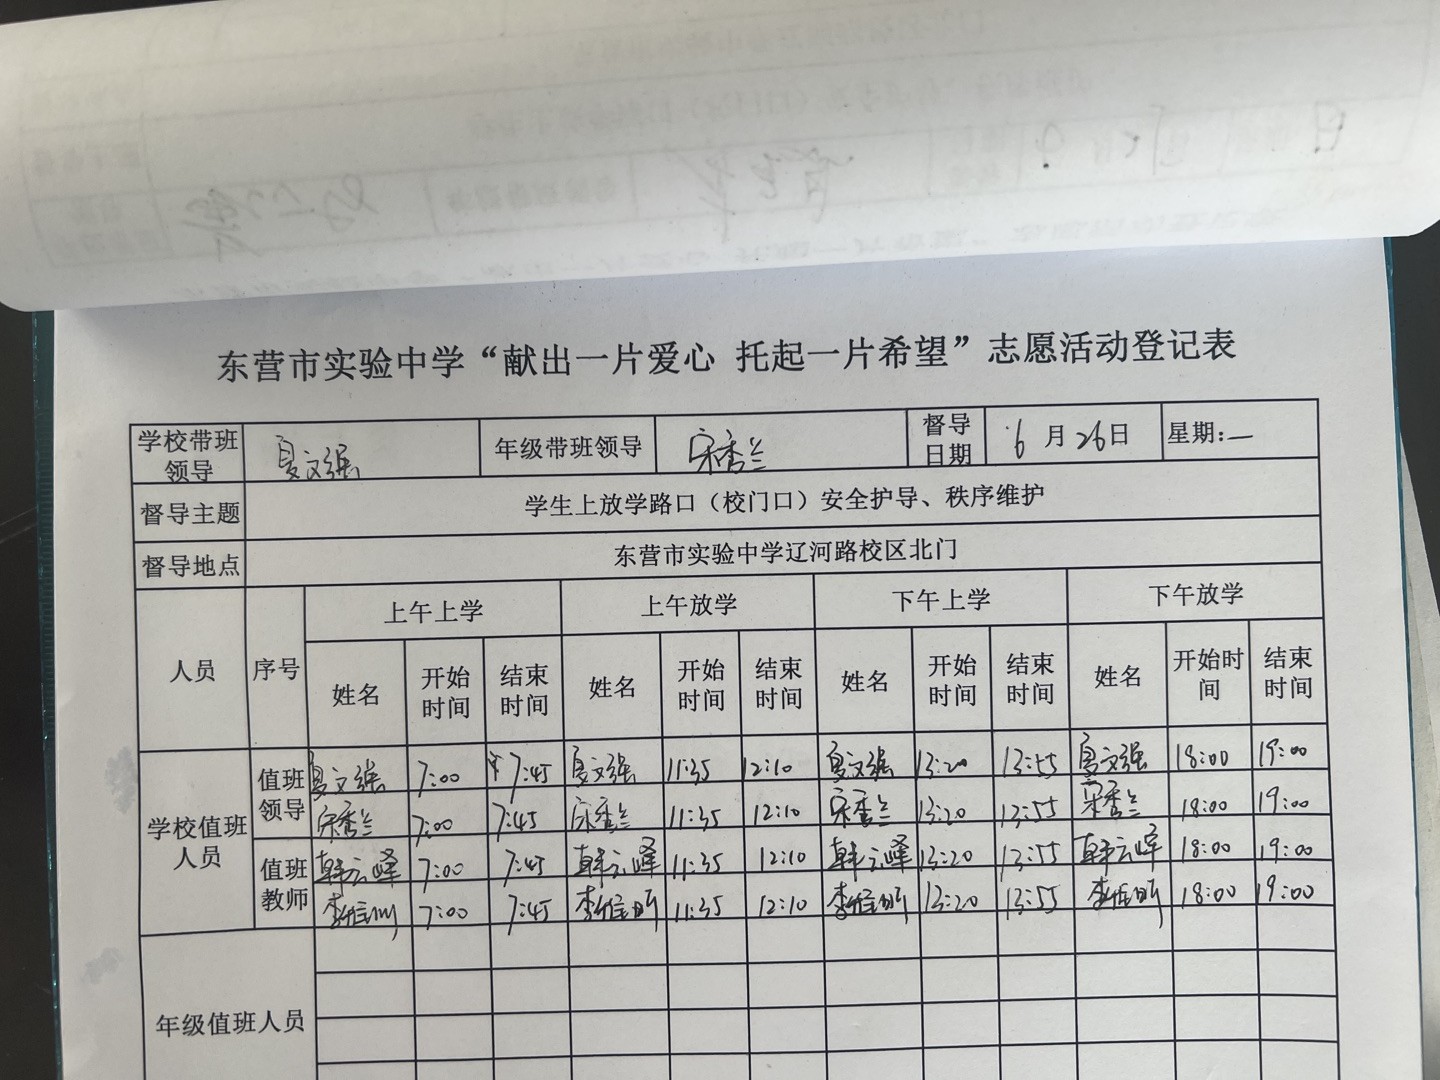 东营市实验中学“献出一片爱心 托起一片希望”志愿活动登记表
学校带班领导 夏文强 年级带班领导 宋秀兰 督导日期 6月26日 星期：一
督导主题 学生上放学路口（校门口）安全护导、秩序维护
督导地点 东营市实验中学辽河路校区北门
人员 序号 上午上学 上午放学 下午上学 下午放学
姓名 开始时间 结束时间 姓名 开始时间 结束时间 姓名 开始时间 结束时间 姓名 开始时间 结束时间
学校值班人员
值班领导
夏文强 7:00 7:45 夏文强 11:35 12:10 夏文强 13:20 13:55 夏文强 18:00 19:00
宋秀兰 7:00 7:45 宋秀兰 11:35 12:10 宋秀兰 13:20 13:55 宋秀兰 18:00 19:00
值班教师
韩云峰 7:00 7:45 韩云峰 11:35 12:10 韩云峰 13:20 13:55 韩云峰 18:00 19:00
7:00 7:45 11:35 12:10 13:20 13:55 18:00 19:00
年级值班人员